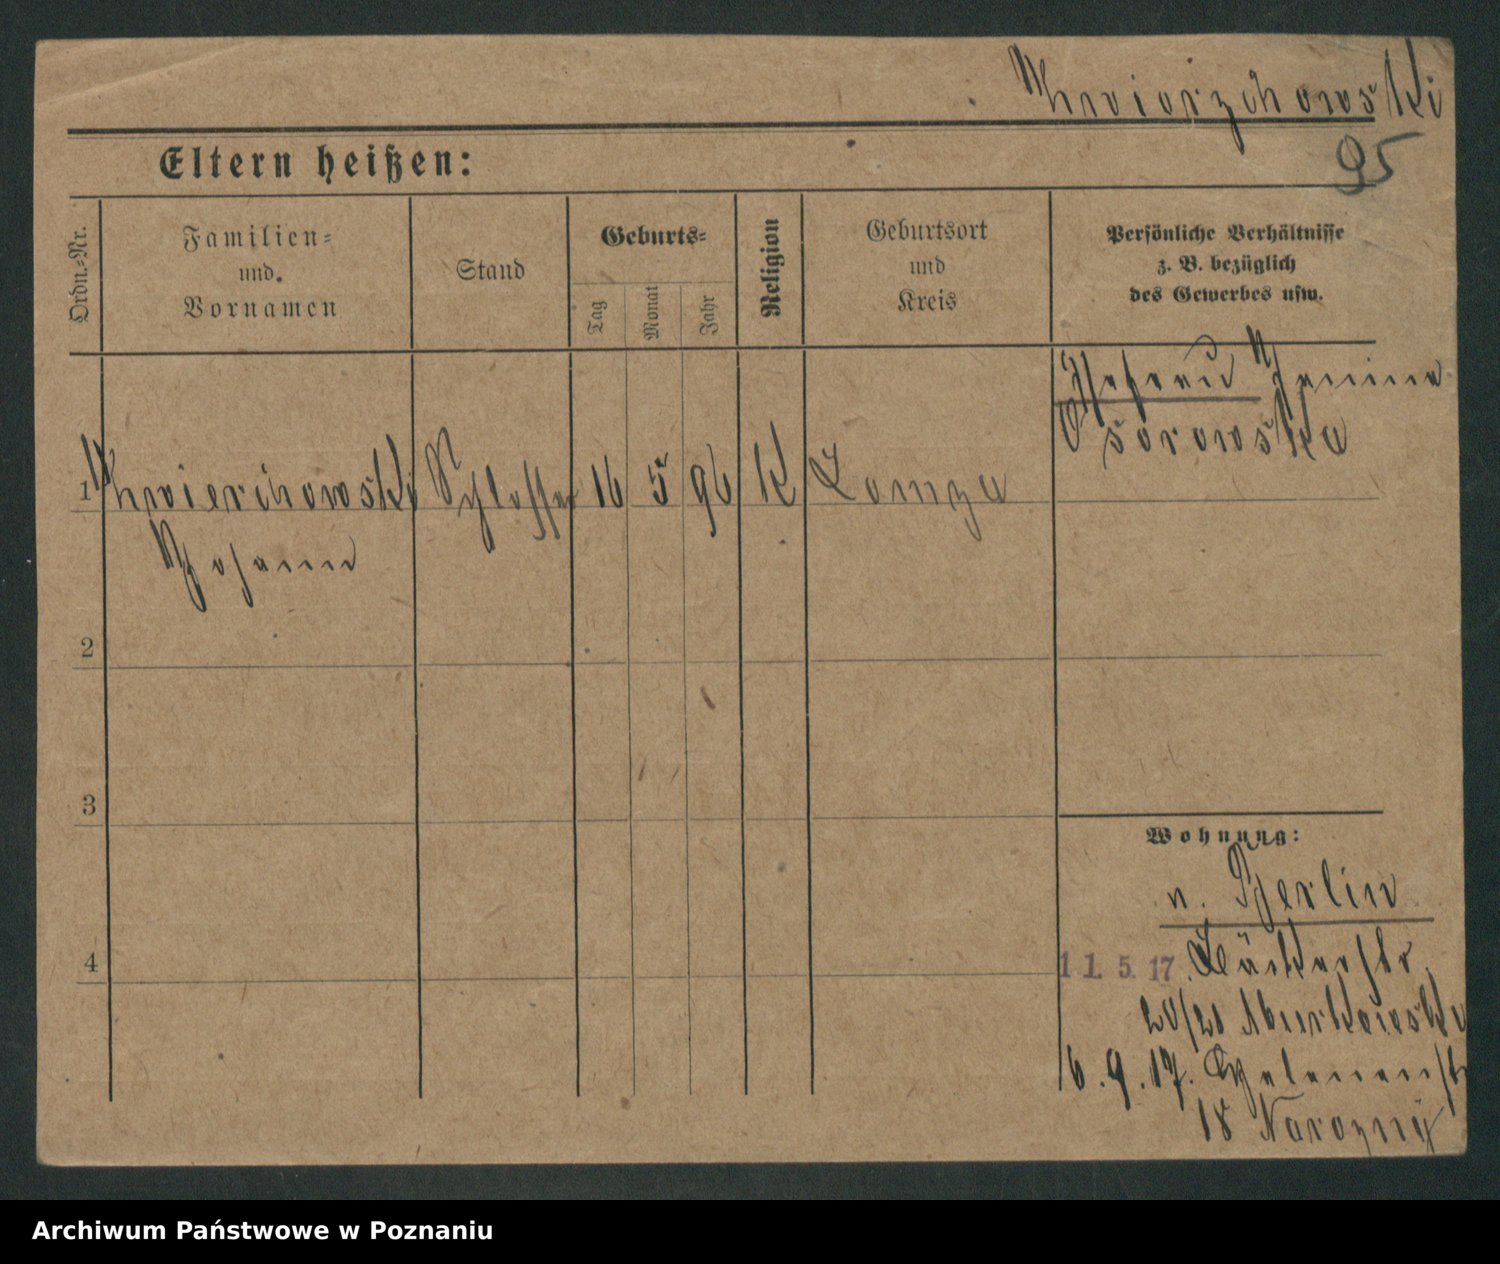 95
Eltern heißen:
Ordn.-Nr.
Familien-
und
Vornamen
Stand
Geburts-
Tag
Monat
Jahr
Religion
Geburtsort
und
Kreis
Persönliche Verhältnisse
z. B. bezüglich
des Gewerbes usw.
Ehefrau Janina
1 Schlosser 16 5 96 K Lomza
Johann
2
3
4
Wohnung:
v. Berlin
11. 5. 17 Bäckerstr.
20/21
6.9.17. Helenenstr
18 Narozny
Archiwum Państwowe w Poznaniu